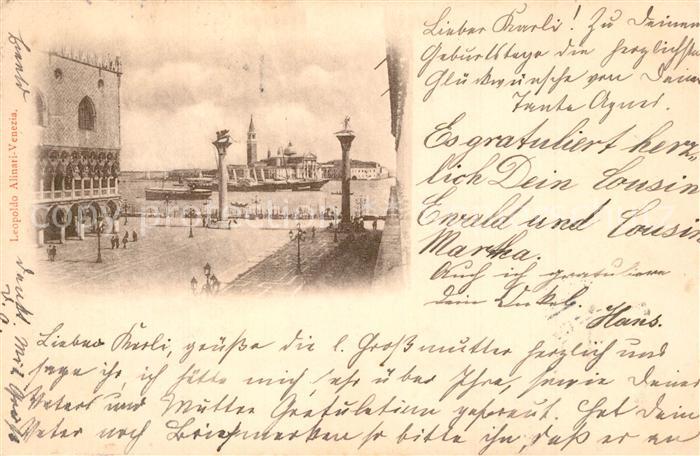 Lieber Karli! Zu Deinem
Geburtstage die herzlichsten
Glückwünsche von Deiner
Tante Agnes.
Es gratuliert herz-
lich Dein Cousin
Ewald und Cousine
Martha.
Auch ich gratuliere
dein Onkel.
Hans.
Leopoldo Alinari-Venezia.
Lieber Karli, grüße die l. Großmutter herzlich und
sage ihr, ich hätte mich sehr über Ihre, sowie Deines
Vaters und Mutter Gratulation gefreut. Hat Dein
Vater noch Briefmarken so bitte ihn, daß er an